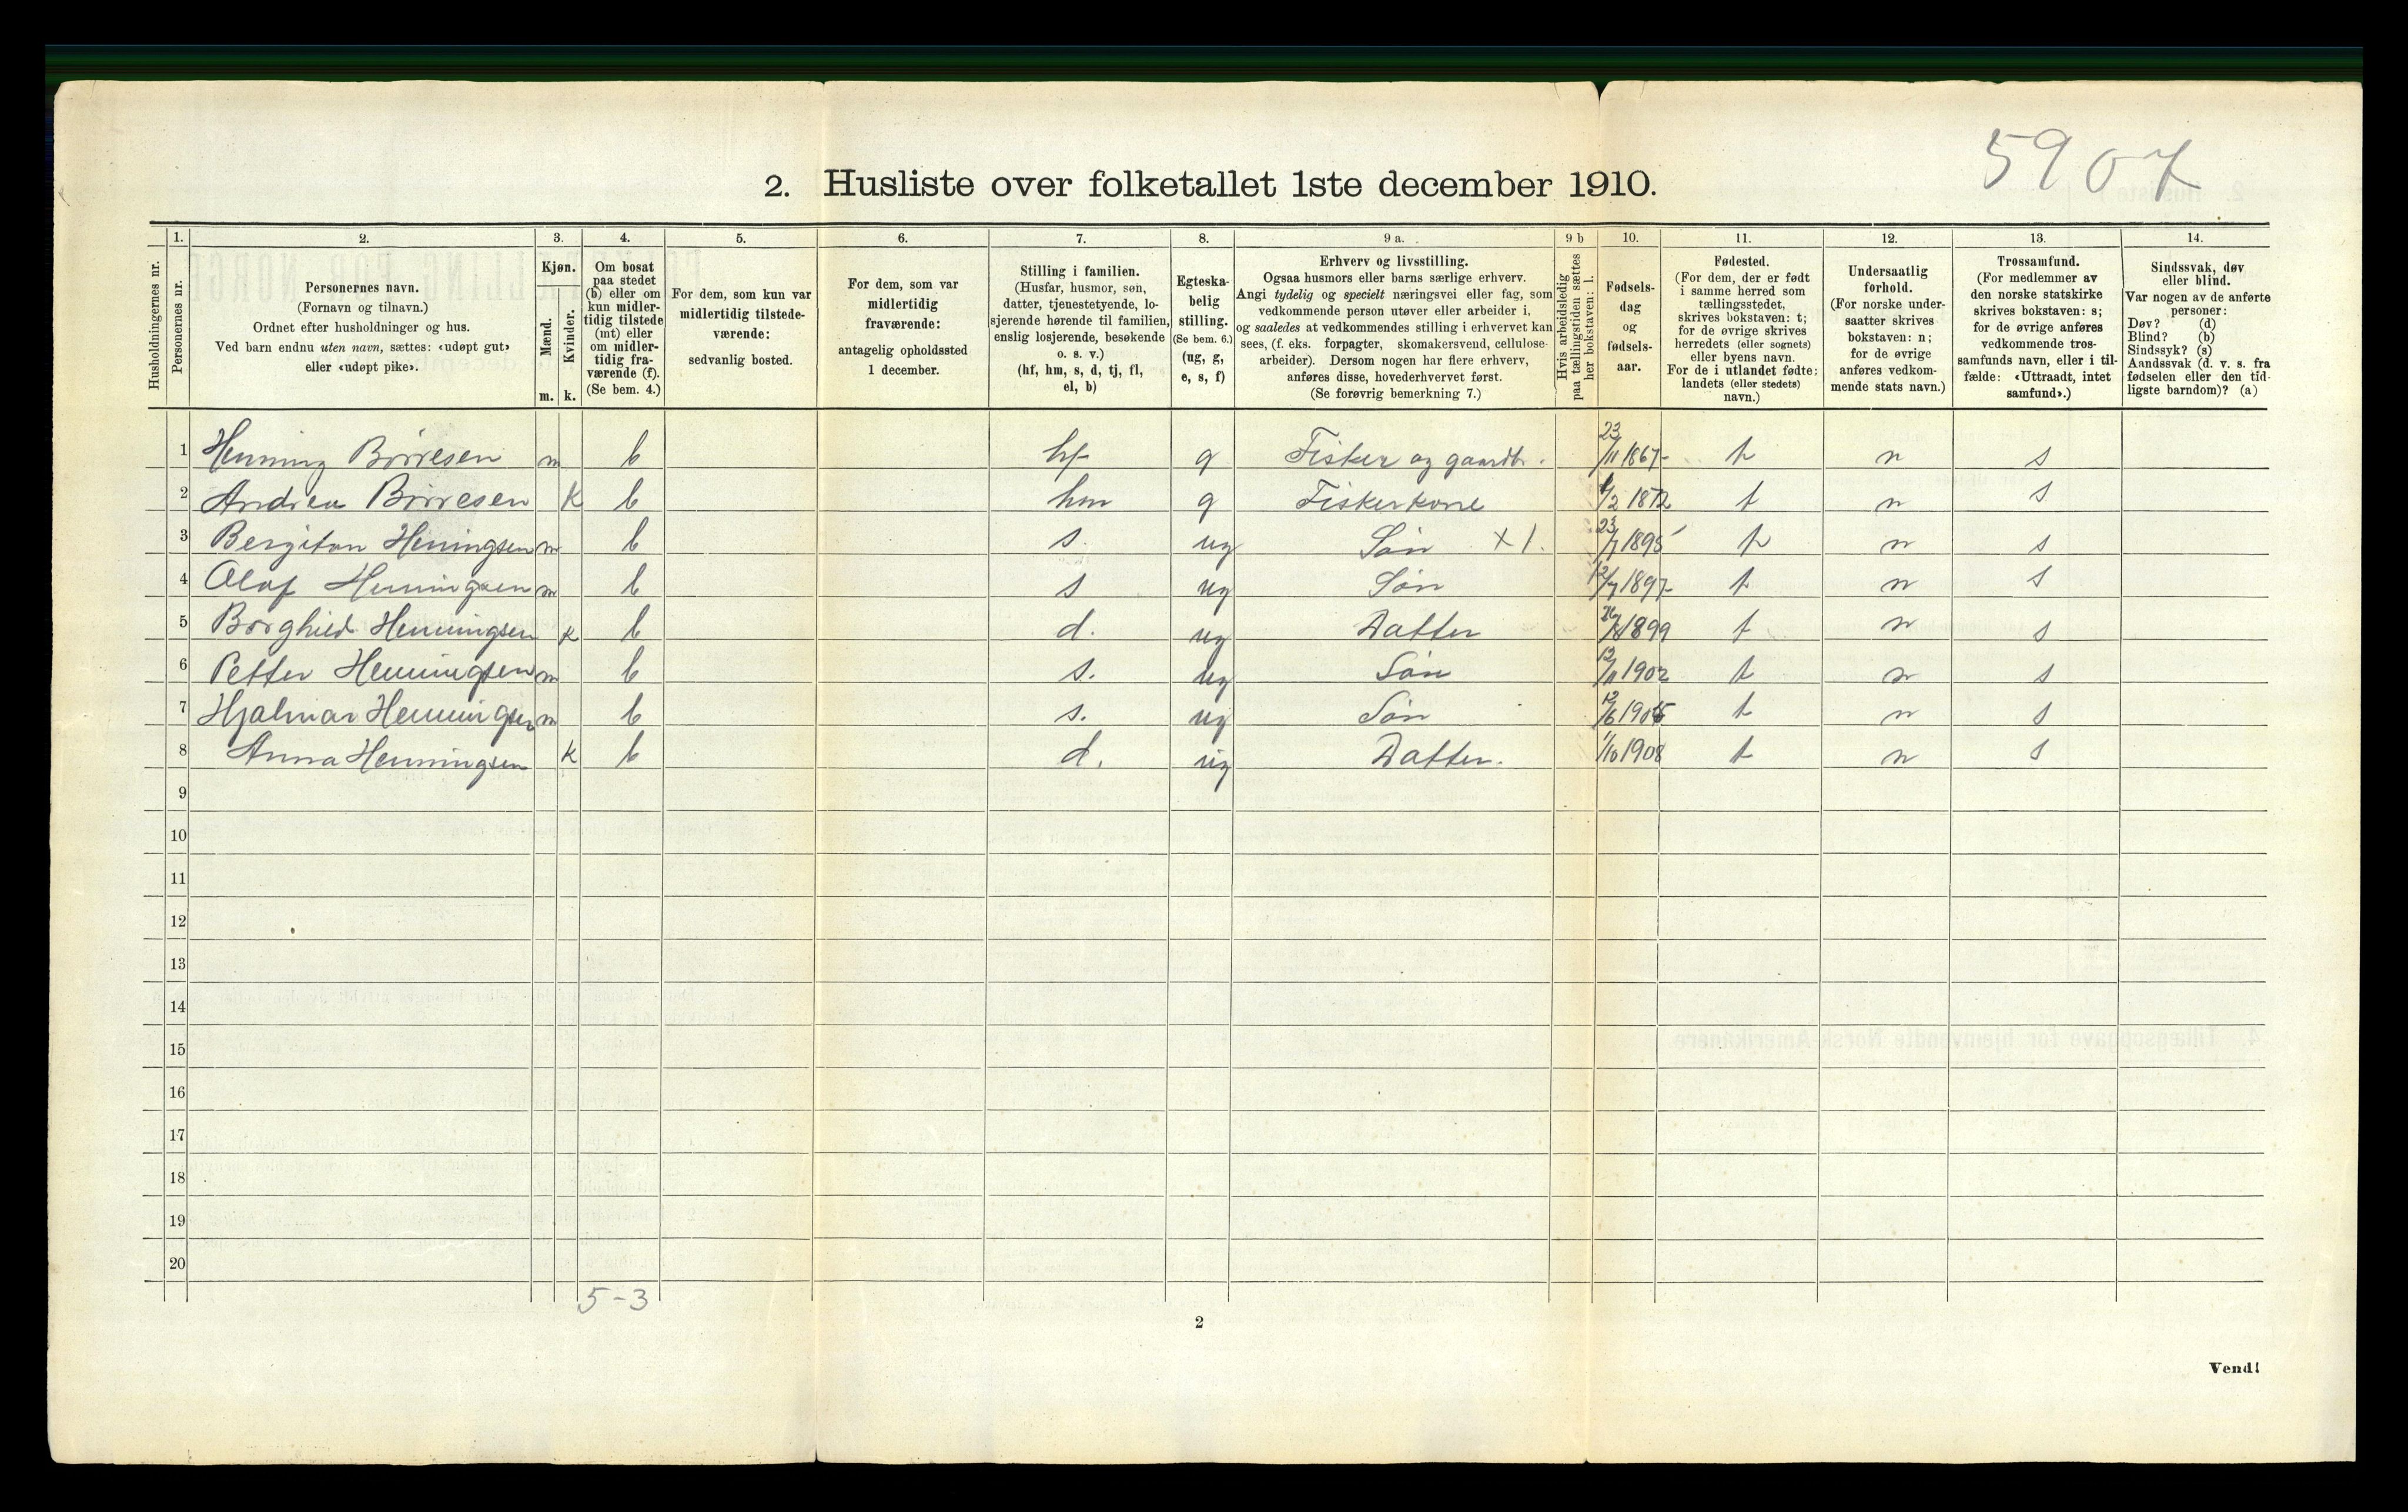 5907
2. Husliste over folketallet 1ste december 1910.
Husholdningernes nr.
1. Personernes nr.
2. Personernes navn.
(Fornavn og tilnavn.)
Ordnet efter husholdninger og hus.
Ved barn endnu uten navn, sættes: «udøpt gut»
eller «udøpt pike».
3. Kjøn.
Mænd. Kvinder.
m. k.
4. Om bosat
paa stedet
(b) eller om
kun midler-
tidig tilstede
(mt) eller
om midler-
tidig fra-
værende (f).
(Se bem. 4.)
5. For dem, som kun var
midlertidig tilstede-
værende:
sedvanlig bosted.
6. For dem, som var
midlertidig
fraværende:
antagelig opholdssted
1 december.
7. Stilling i familien.
(Husfar, husmor, søn,
datter, tjenestetyende, lo-
sjerende hørende til familien,
enslig losjerende, besøkende
o. s. v.)
(hf, hm, s, d, tj, fl,
el, b)
8. Egteska-
belig
stilling.
(Se bem. 6.)
(ug, g,
e, s, f)
9 a. Erhverv og livsstilling.
Ogsaa husmors eller barns særlige erhverv.
Angi tydelig og specielt næringsvei eller fag, som
vedkommende person utøver eller arbeider i,
og saaledes at vedkommendes stilling i erhvervet kan
sees, (f. eks. forpagter, skomakersvend, cellulose-
arbeider). Dersom nogen har flere erhverv,
anføres disse, hovederhvervet først.
(Se forøvrig bemerkning 7.)
9 b Hvis arbeidsledig
paa tællingstiden sættes
her bokstaven: l.
10. Fødsels-
dag
og
fødsels-
aar.
11. Fødested.
(For dem, der er født
i samme herred som
tællingsstedet,
skrives bokstaven: t;
for de øvrige skrives
herredets (eller sognets)
eller byens navn.
For de i utlandet fødte:
landets (eller stedets)
navn.)
12. Undersaatlig
forhold.
(For norske under-
saatter skrives
bokstaven: n;
for de øvrige
anføres vedkom-
mende stats navn.)
13. Trossamfund.
(For medlemmer av
den norske statskirke
skrives bokstaven: s;
for de øvrige anføres
vedkommende tros-
samfunds navn, eller i til-
fælde: «Uttraadt, intet
samfund».)
14. Sindssvak, døv
eller blind.
Var nogen av de anførte
personer:
Døv? (d)
Blind? (b)
Sindssyk? (s)
Aandssvak (d. v. s. fra
fødselen eller den tid-
ligste barndom)? (a)
1 Henning Børresen m b hf g Fisker og gaardb. 23/11 1867 t n s
2 Andrea Børresen k b hm g Fiskerkone /2 1872 t n s
3 Bergiton Heningsen m b s. ug Søn X 1. 23/7 1895 t n s
4 Olaf Henningsen m b s ug Søn 12/7 1897 t n s
5 Borghild Henningsen k b d. ug Datter 1899 t n s
6 Petter Henningsen m b s. ug Søn 13/11 1902 t n s
7 Hjalmar Henningsen m b s. ug Søn t n s
8 Anna Henningsen k b d. ug Datter. 1/10 1908 t n s
9
10
11
12
13
14
15
16
17
18
19
20
5-3
2
Vend!